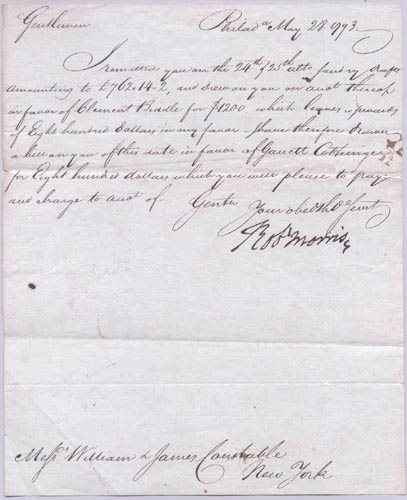 Gentlemen
Philad.a May 28 1793
I remitted you on the 24th & 25th ulto sundry drafts
amounting to £762.14.2, and drew on you on acct thereof
in favor of Clement Biddle for $1200. which leaves upwards
of Eight hundred dollars in my favor I have therefore drawn
a bill on you of this date in favor of Garrett Cottringer
for Eight hundred dollars which you will please to pay
and charge to acct of Gentn
Your obedt hble Servt
Robt Morris
Messrs William & James Constable
New York